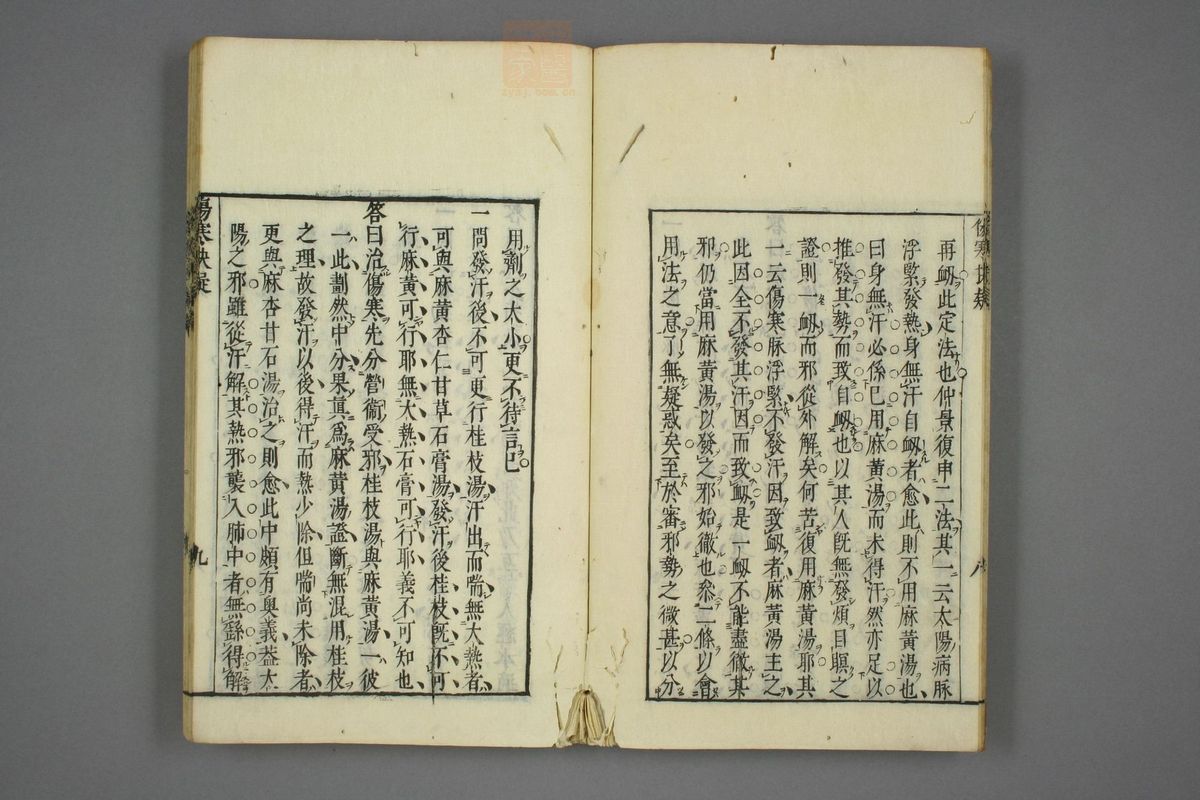 傷寒抉疑
再衂此定法也仲景復申二法其一云太陽病脉
浮緊發熱身無汗自衂者愈此則不用麻黄湯也
曰身無汗必係已用麻黄湯而未得汗然亦足以
推發其勢而致自衂也以其人旣無發煩目瞑之
證則一衂而邪從外解矣何苦復用麻黄湯耶其
一云傷寒脉浮緊不發汗因致衂者麻黄湯主之
此因全不發其汗因而致衂是一衂不能盡徹其
邪仍當用麻黄湯以發之邪始徹也叅二條以會
用法之意了無疑惑矣至於審邪勢之微甚以分
用劑之大小更不待言已
一問發汗後不可更行桂枝湯汗出而喘無大熱者
可與麻黄杏仁甘草石膏湯發汗後桂枝旣不可
行麻黄可行耶無大熱石膏可行耶義不可知也
答曰治傷寒先分營衞受邪桂枝湯與麻黄湯一彼
一此劃然中分果眞爲麻黄湯證斷無混用桂枝
之理故發汗以後得汗而熱少除但喘尚未除者
更與麻杏甘石湯治之則愈此中頗有奥義葢太
陽之邪雖從汗解其熱邪襲入肺中者無繇得解
傷寒抉疑
九